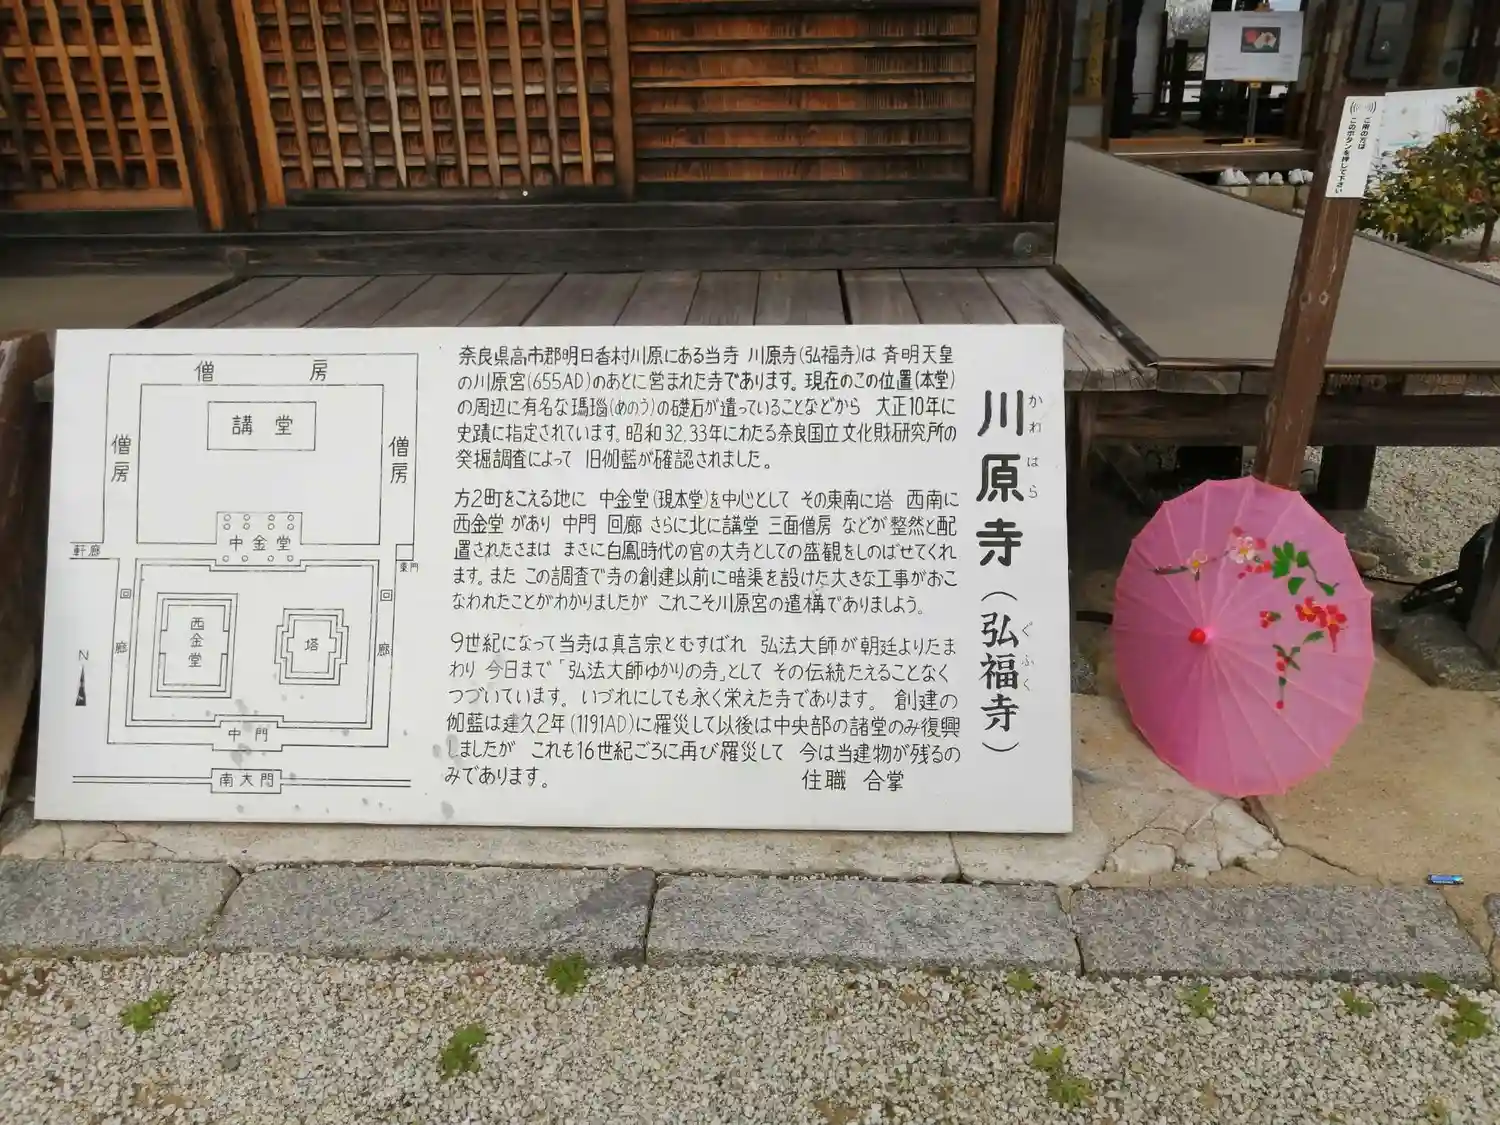 川原寺(弘福寺)
かわ はら
ぐ ふく
奈良県高市郡明日香村川原にある当寺 川原寺(弘福寺)は 斉明天皇
の川原宮(655AD)のあとに営まれた寺であります。現在のこの位置(本堂)
の周辺に有名な瑪瑙(めのう)の礎石が遺っていることなどから 大正10年に
史蹟に指定されています。昭和32,33年にわたる奈良国立文化財研究所の
発掘調査によって 旧伽藍が確認されました。
方2町をこえる地に 中金堂(現本堂)を中心として その東南に塔 西南に
西金堂 があり 中門 回廊 さらに北に講堂 三面僧房 などが 整然と配
置されたさまは まさに白鳳時代の官の大寺としての盛観をしのばせてくれ
ます。また この調査で寺の創建以前に暗渠を設けた大きな工事がおこ
なわれたことがわかりましたが これこそ川原宮の遺構でありましよう。
9世紀になって当寺は真言宗とむすばれ 弘法大師が朝廷よりたま
わり 今日まで「弘法大師ゆかりの寺」として その伝統たえることなく
つづいています。いづれにしても永く栄えた寺であります。 創建の
伽藍は建久2年(1191AD)に罹災して以後は中央部の諸堂のみ復興
しましたが これも16世紀ごろに再び罹災して 今は当建物が残るの
みであります。 住職 合掌
僧 房
講 堂
僧房
僧房
中金堂
軒廊
東門
回廊
回廊
西金堂
塔
N
中門
南大門
ご用の方は
このボタンを押して下さい